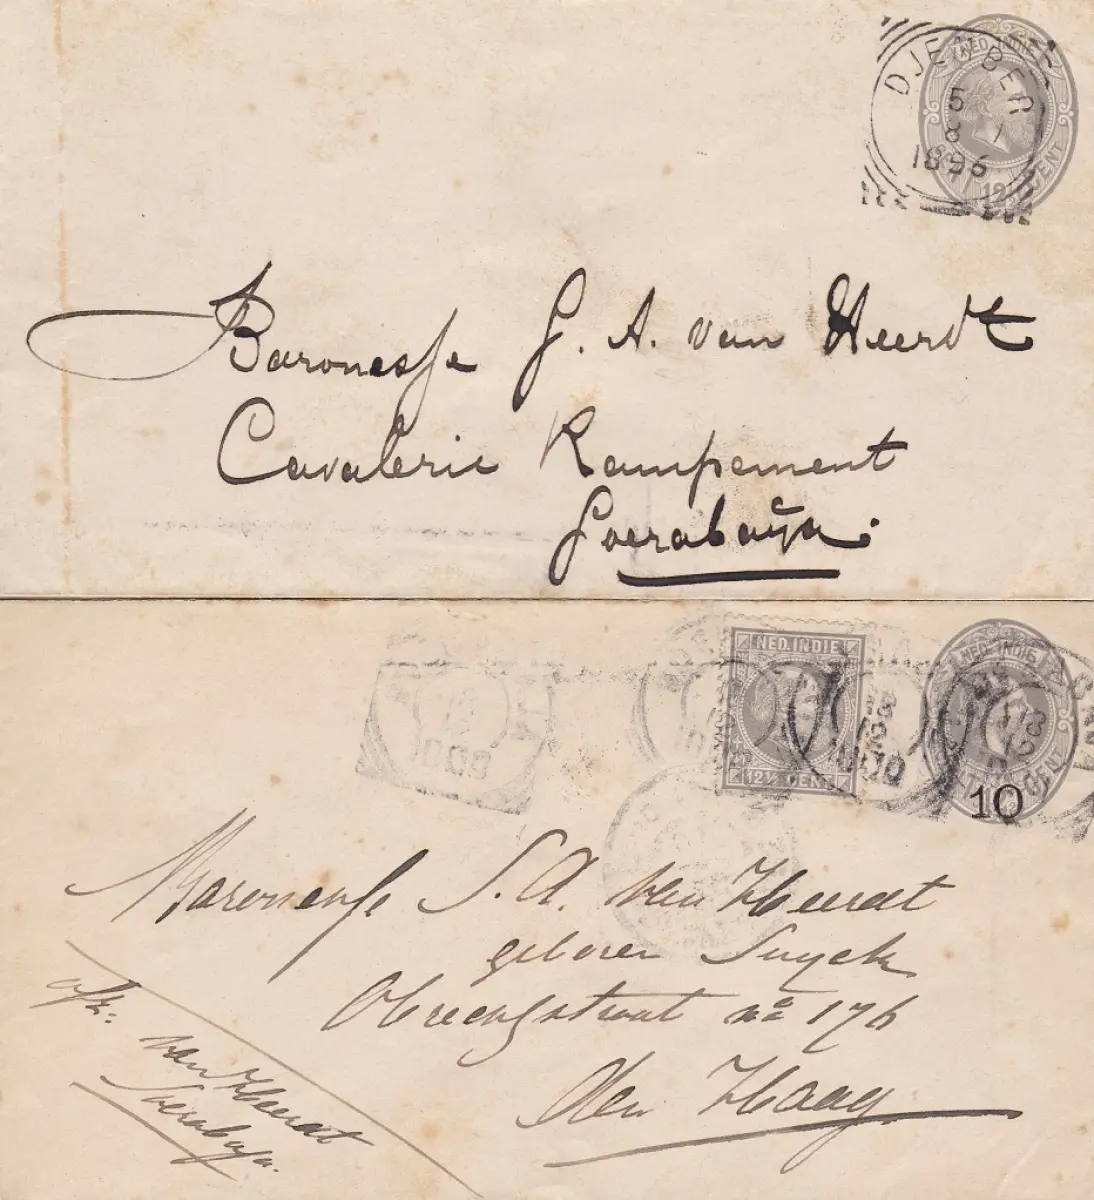 NED. INDIE
DJEMBER
5
8 7
1896
CENT
Baronesse J. A. van Heerdt
Cavalerie Kampement
Soerabaija.
NED. INDIE
12½ CENT
NED. INDIE
CENT
10
Baronesse S. A. van Heerdt
geboren
Obrechtstraat no 176
Den Haag
afz:
van Heerdt
Soerabaija.